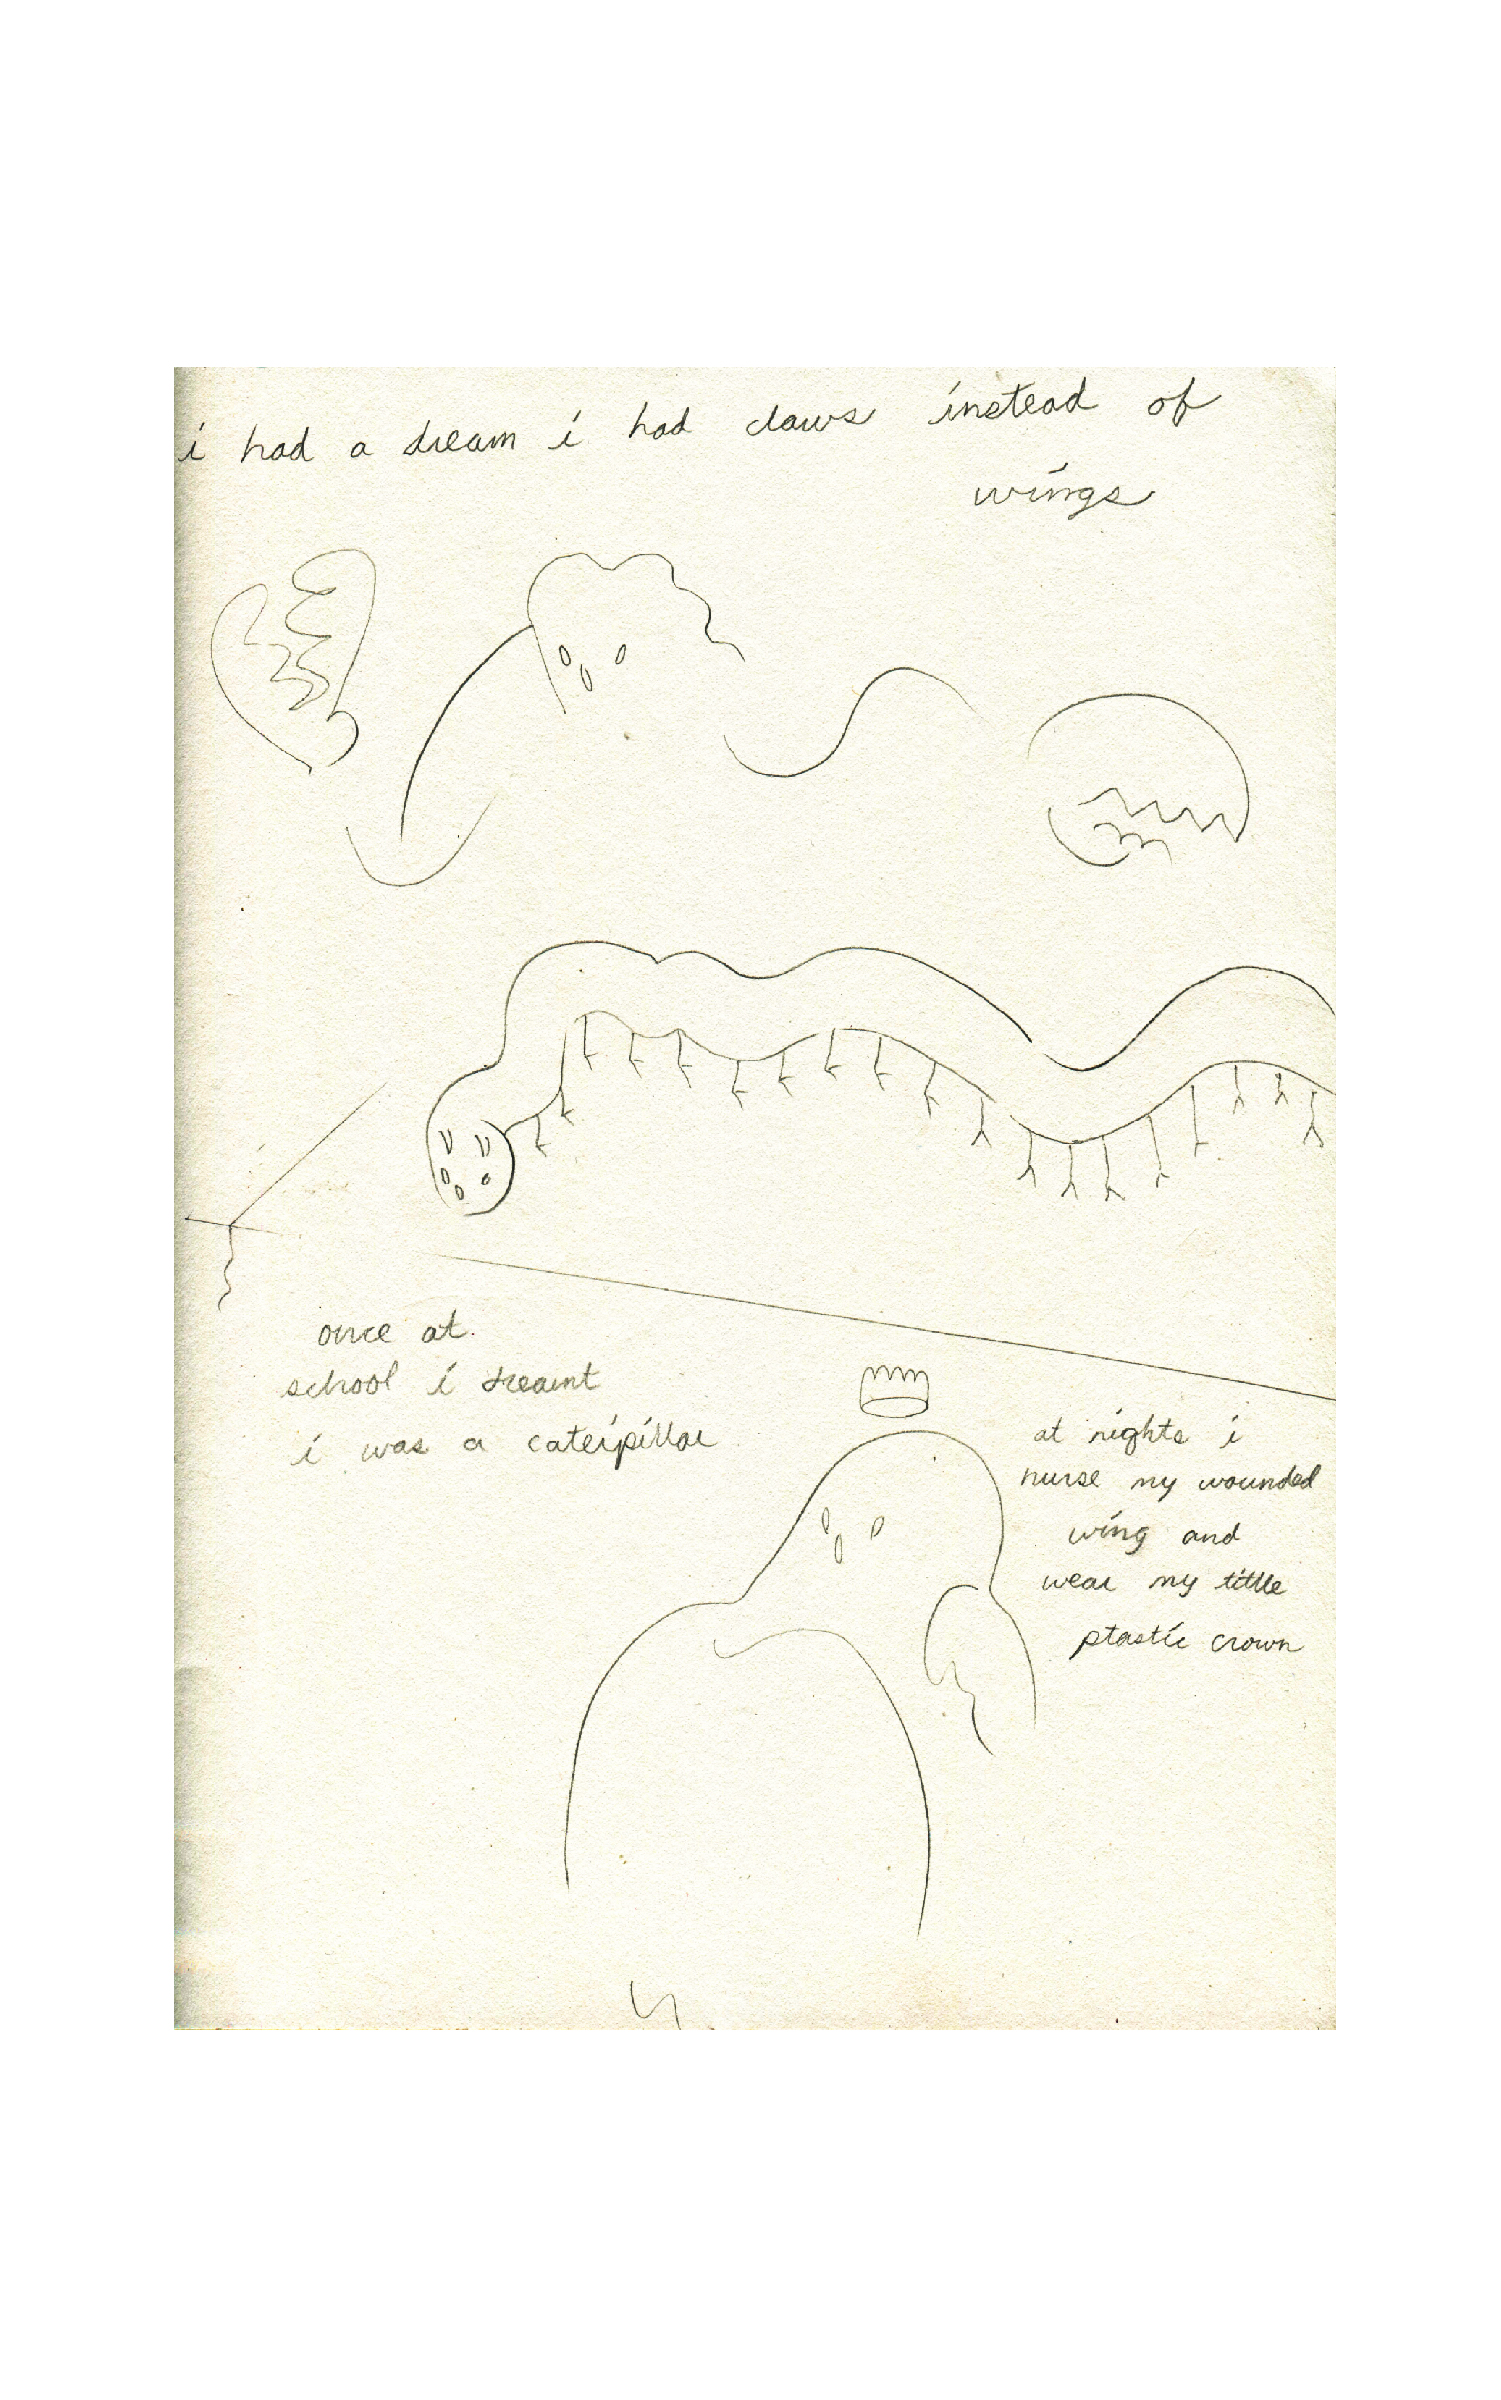 i had a dream i had claws instead of
wings
once at
school i dreamt
i was a caterpillar
at nights i
nurse my wounded
wing and
wear my little
plastic crown